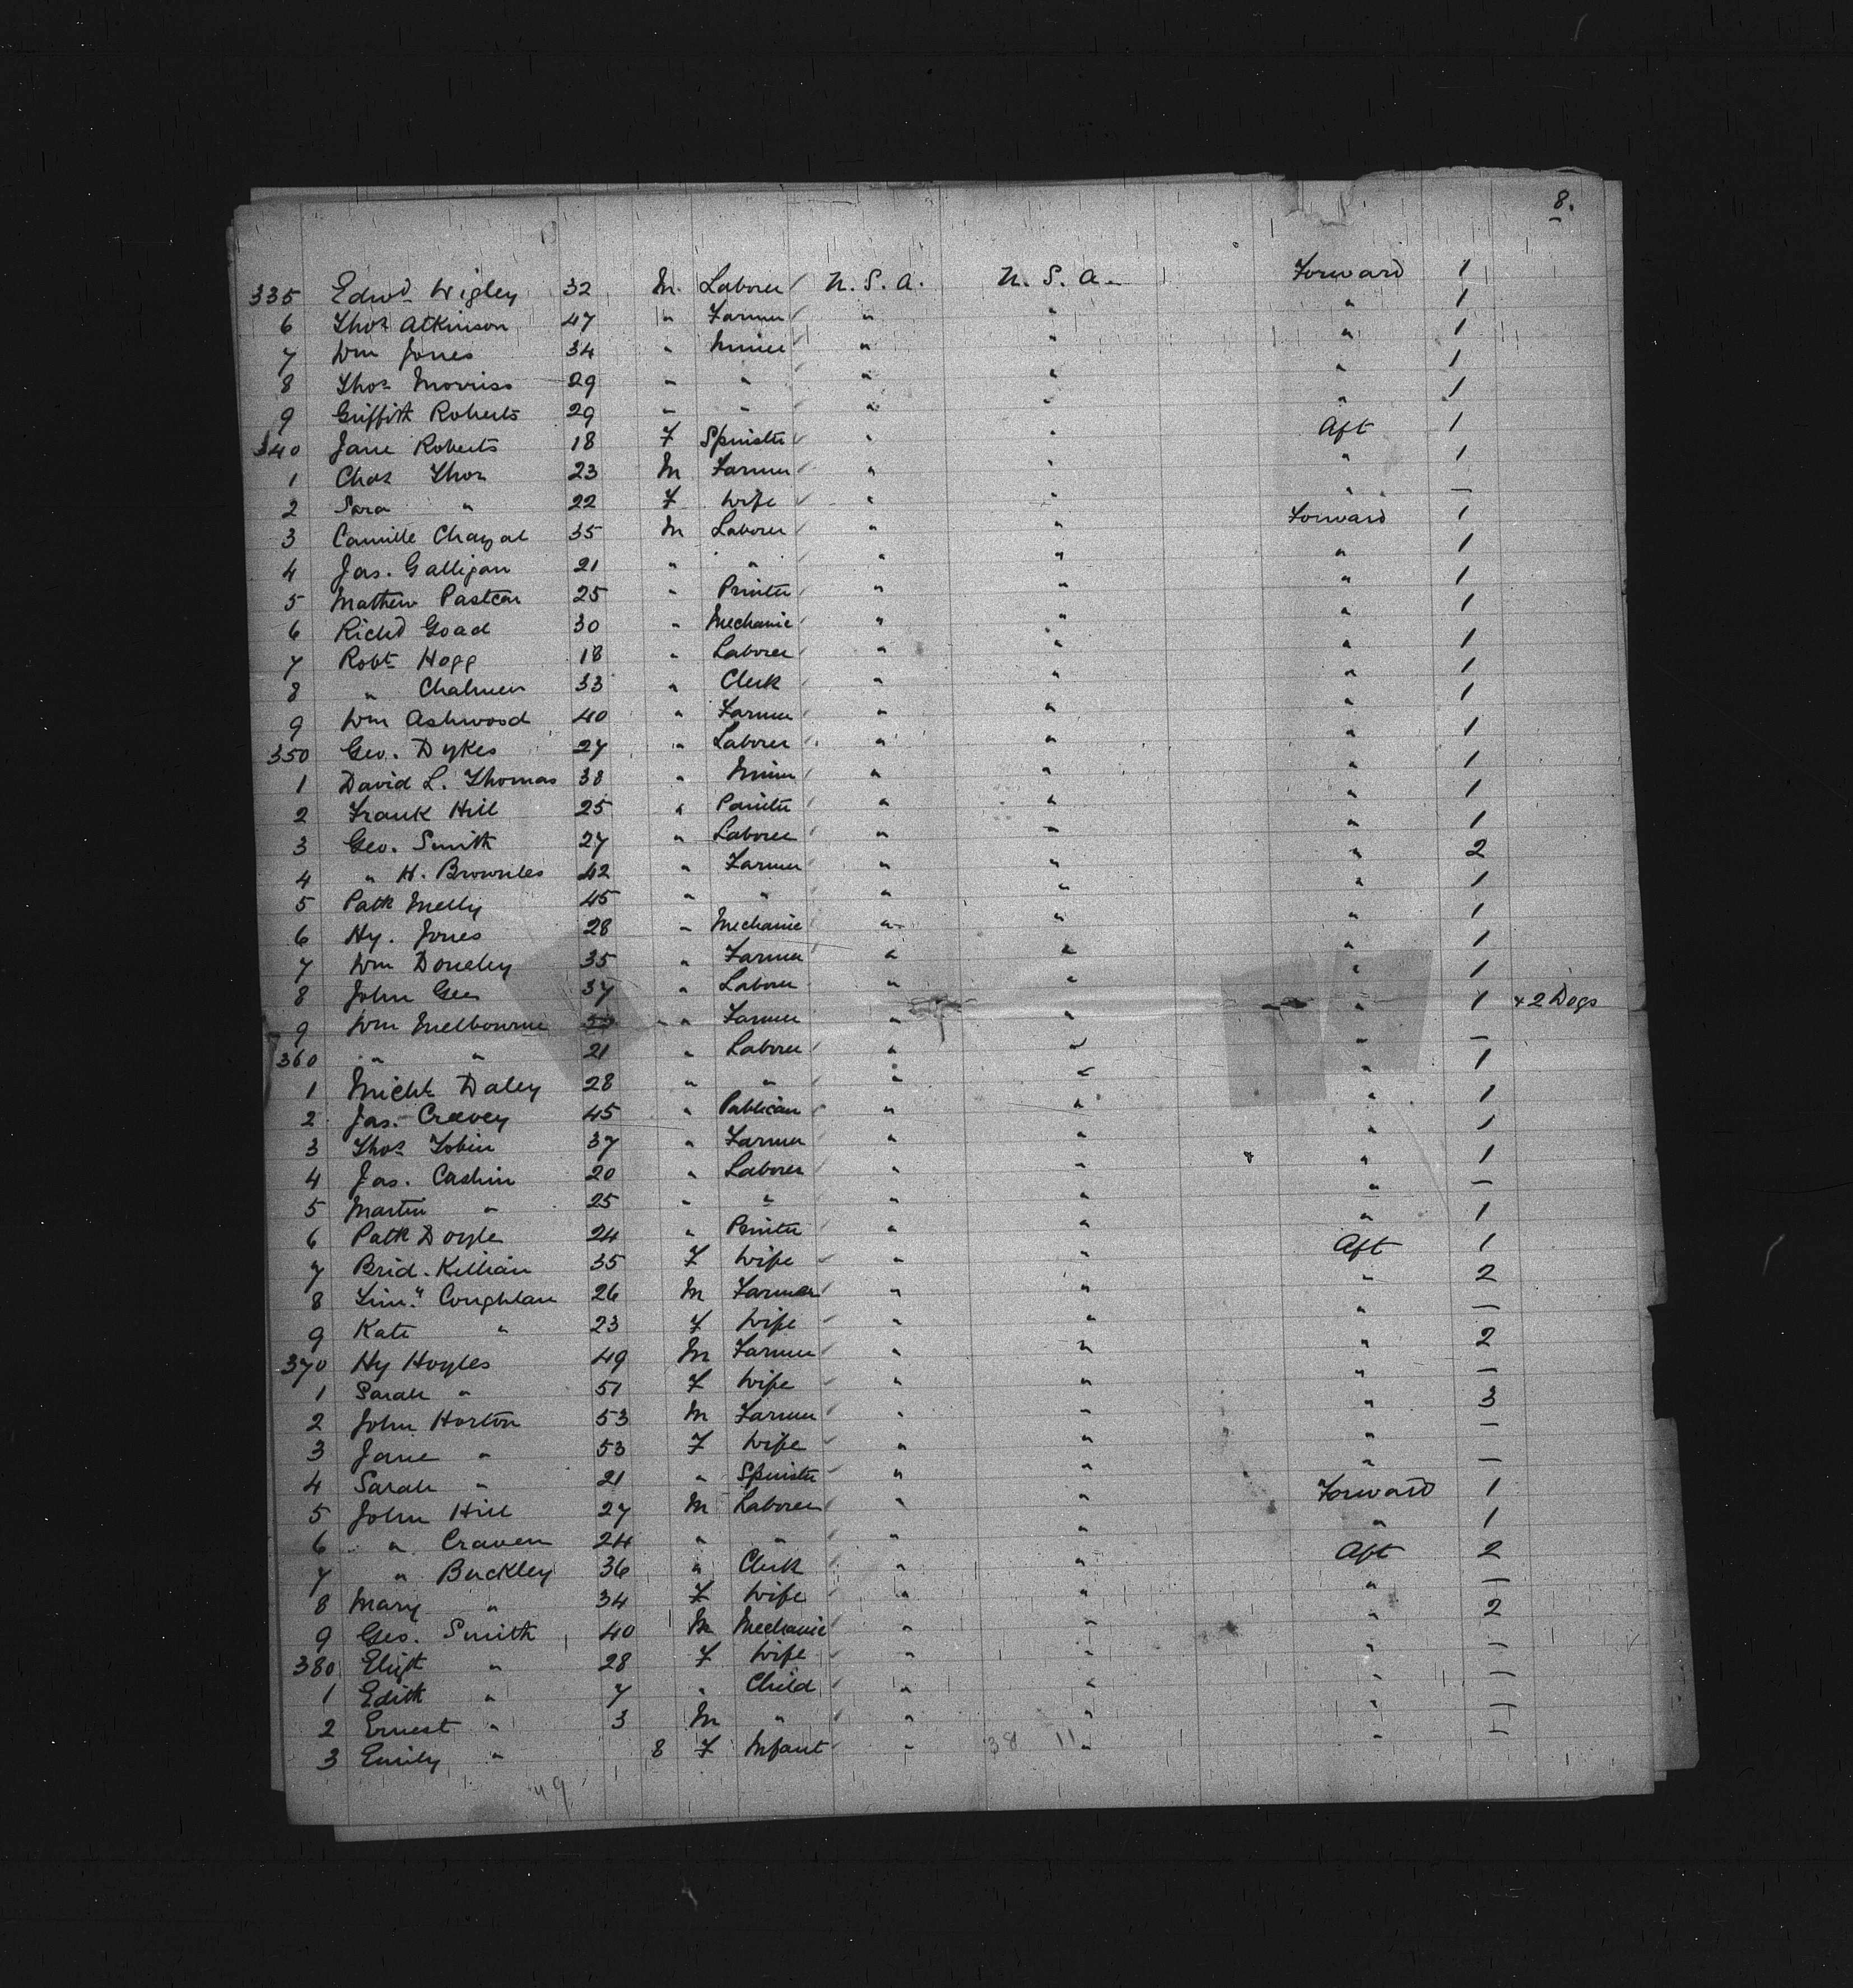 8.
335 Edwd Wigley 32 M. Laborer U.S.A. U.S.A. Forward 1
6 Thos Atkinson 47 " Farmer " " " 1
7 Wm Jones 34 " Miner " " " 1
8 Thos Morriss 29 " " " " " 1
9 Griffith Roberts 29 " " " " " 1
340 Jane Roberts 18 F Spinster " " Aft 1
1 Chas Thos 23 M Farmer " " " 1
2 Sara " 22 F Wife " " " —
3 Camille Chazal 35 M Laborer " " Forward 1
4 Jas. Galligan 21 " " " " " 1
5 Mathew 25 " Printer " " " 1
6 Richd Goad 30 " Mechanic " " " 1
7 Robt Hogg 18 " Laborer " " " 1
8 " Chalmers 33 " Clerk " " " 1
9 Wm Ashwood 40 " Farmer " " " 1
350 Geo. Dykes 27 " Laborer " " " 1
1 David L. Thomas 38 " Miner " " " 1
2 Frank Hill 25 " Painter " " " 1
3 Geo. Smith 27 " Laborer " " " 1
4 " H. Brownles 42 " Farmer " " " 2
5 Patk Melly 45 " " " " " 1
6 Hy. Jones 28 " Mechanic " " " 1
7 Wm 35 " Farmer " " " 1
8 John Gee 37 " Laborer " " " 1
9 Wm Melbourne " Farmer " " " 1 + 2 Dogs
360 " " 21 " Laborer " " " —
1 Michl Daley 28 " " " " " 1
2 Jas. Creevey 45 " Publican " " " 1
3 Thos Tobin 37 " Farmer " " " 1
4 Jas. Cashin 20 " Laborer " " " 1
5 Martin " 25 " " " " " —
6 Patk Doyle 24 " Printer " " " 1
7 Brid. Killian 35 F Wife " " Aft 1
8 Timy Coughlan 26 M Farmer " " " 2
9 Kate " 23 F Wife " " " —
370 Hy Hoyles 49 M Farmer " " " 2
1 Sarah " 51 F Wife " " " —
2 John Horton 53 M Farmer " " " 3
3 Jane " 53 F Wife " " " —
4 Sarah " 21 " Spinster " " " —
5 John Hill 27 M Laborer " " Forward 1
6 " Craven 24 " " " " " 1
7 " Buckley 36 " Clerk " " Aft 2
8 Mary " 34 F Wife " " " —
9 Geo. Smith 40 M Mechanic " " " 2
380 Elizth " 28 F Wife " " " —
1 Edith " 7 " Child " " " —
2 Ernest " 3 M " " " " —
3 Emily " 8 F Infant " 38 11 " " —
49